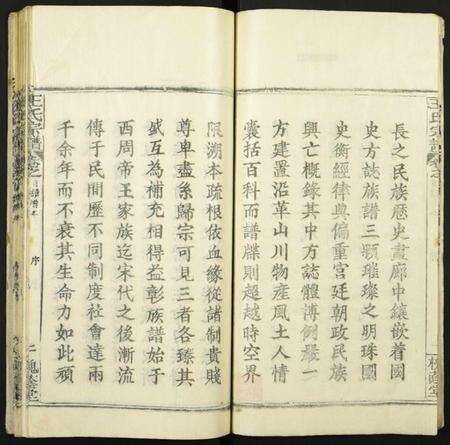 長之民族歷史畫廊中鑲嵌着國
史方誌族譜三顆璀璨之明珠國
史衡經律典偏重宮廷朝政民族
興亡概錄其中方誌體溥例嚴一
方建置沿革山川物產風土人情
囊括百科而譜牒則超越時空界
限溯本疏根依血緣從諸制貴賤
尊卑盡系歸宗可見三者各臻其
盛互為補充相得益彰族譜始于
西周帝王家族迄宋代之後漸流
傳于民間歷不同制度社會達兩
千余年而不衰其生命力如此頑
王氏宗譜
序
二
槐蔭堂